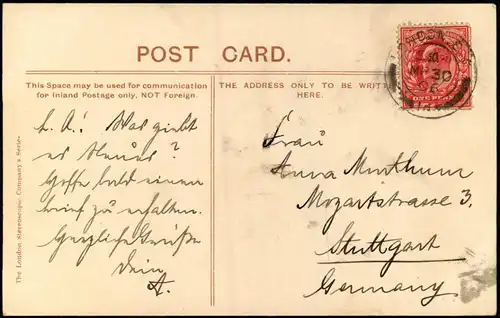 POST CARD.
This Space may be used for communication
for Inland Postage only, NOT Foreign.
THE ADDRESS ONLY TO BE WRITTEN
HERE.
L. A.! Was giebt
es Neues?
Hoffe bald einen
Brief zu erhalten.
Herzliche Grüße
Dein
A.
Frau
Anna
Mozartstrasse 3.
Stuttgart
Germany
The London Stereoscopic Company's Series
LONDON
30
ONE PENNY